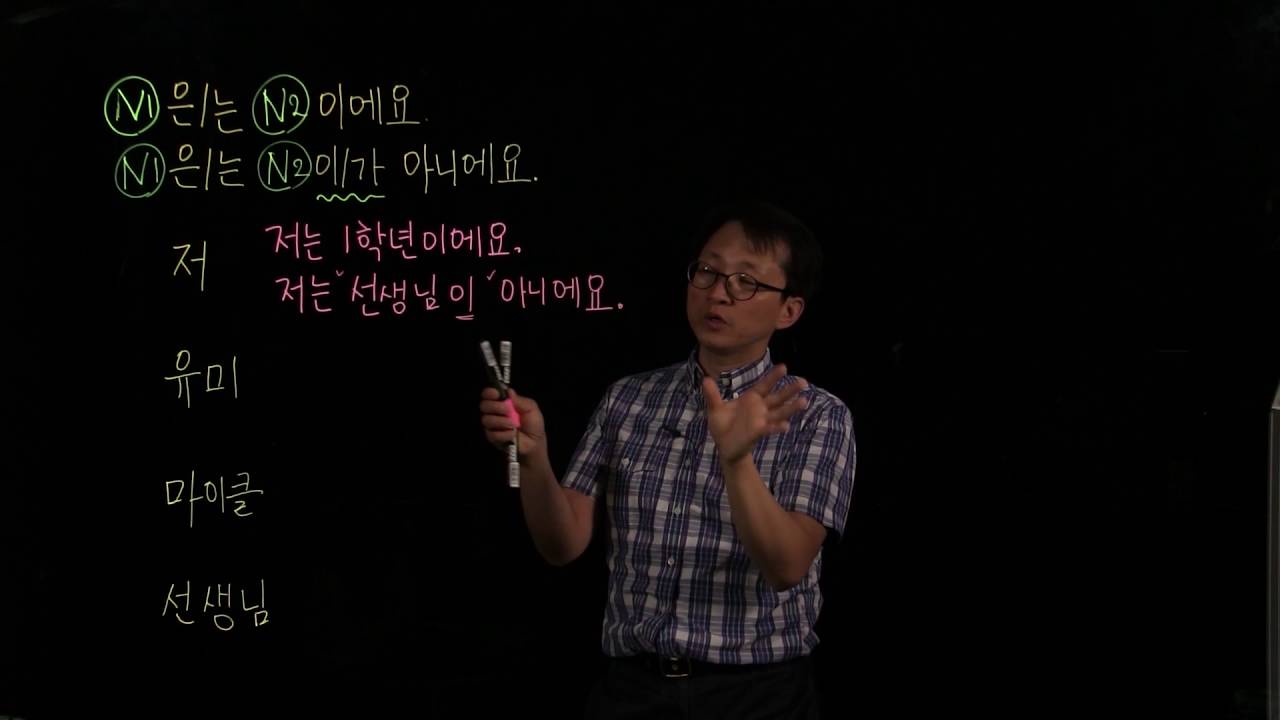 N1 은/는 N2 이에요.
N1 은/는 N2 이/가 아니에요.
저
저는 1학년이에요.
저는 선생님이 아니에요.
유미
마이클
선생님